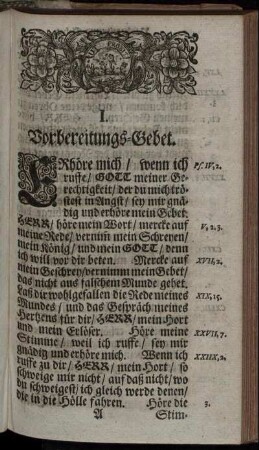 I.
Vorbereitungs-Gebet.
ERhöre mich / wenn ich Ps. IV, 2.
ruffe / GOTT meiner Ge-
rechtigkeit / der du mich trö-
stest in Angst / sey mir gnä-
dig und erhöre mein Gebet.
HERR / höre mein Wort / mercke auf V, 2. 3.
meine Rede / vernim mein Schreyen /
mein König / und mein GOTT / denn
ich will vor dir beten. Mercke auf XVII, 2.
mein Geschrey / vernimm mein Gebet /
das nicht aus falschem Munde gehet.
Laß dir wohlgefallen die Rede meines XIX, 15.
Mundes / und das Gespräch meines
Hertzens für dir / HERR / mein Hort
und mein Erlöser. Höre meine XXVII, 7.
Stimme / weil ich ruffe / sey mir
gnädig und erhöre mich. Wenn ich XXIIX, 2.
ruffe zu dir / HERR / mein Hort / so
schweige mir nicht / auf daß nicht / wo
du schweigest / ich gleich werde denen /
die in die Hölle fahren. Höre die 3.
A Stim-